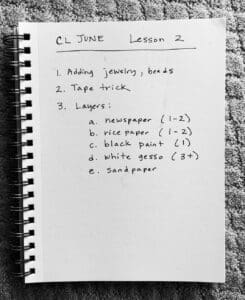 CL JUNE Lesson 2
1. Adding jewelry, beads
2. Tape trick
3. Layers:
a. newspaper (1-2)
b. rice paper (1-2)
c. black paint (1)
d. white gesso (3+)
e. sandpaper